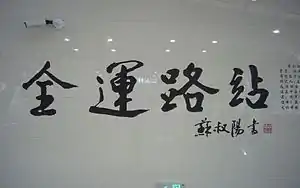 全運路站
蘇叔陽書